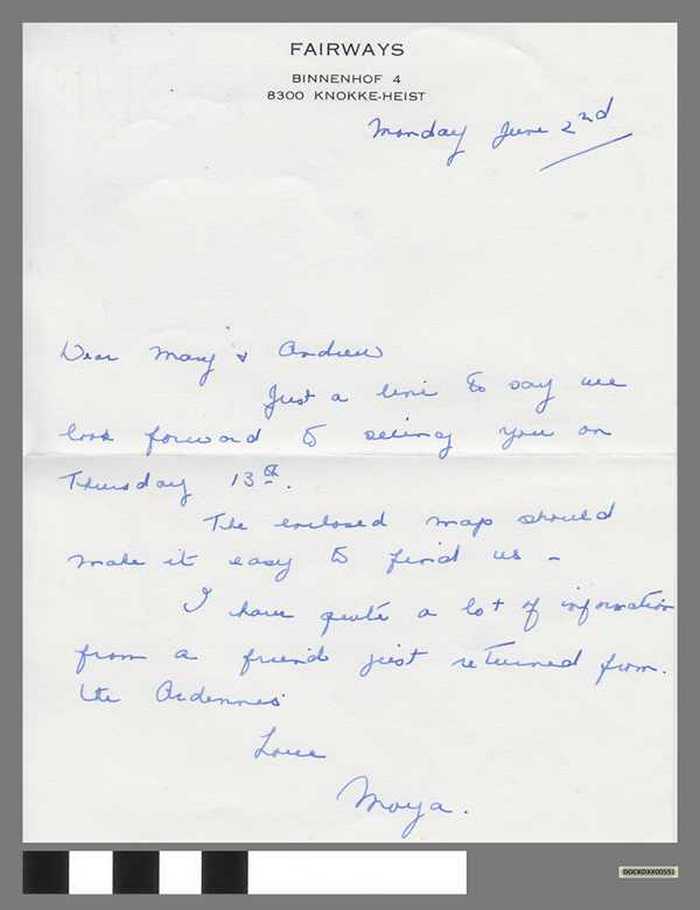 FAIRWAYS
BINNENHOF 4
8300 KNOKKE-HEIST
Monday June 2nd
Dear Mary & Andrew
Just a line to say we
look forward to seeing you on
Thursday 13th.
The enclosed map should
make it easy to find us -
I have quite a lot of information
from a friend just returned from.
the Ardennes
Love
Moya.